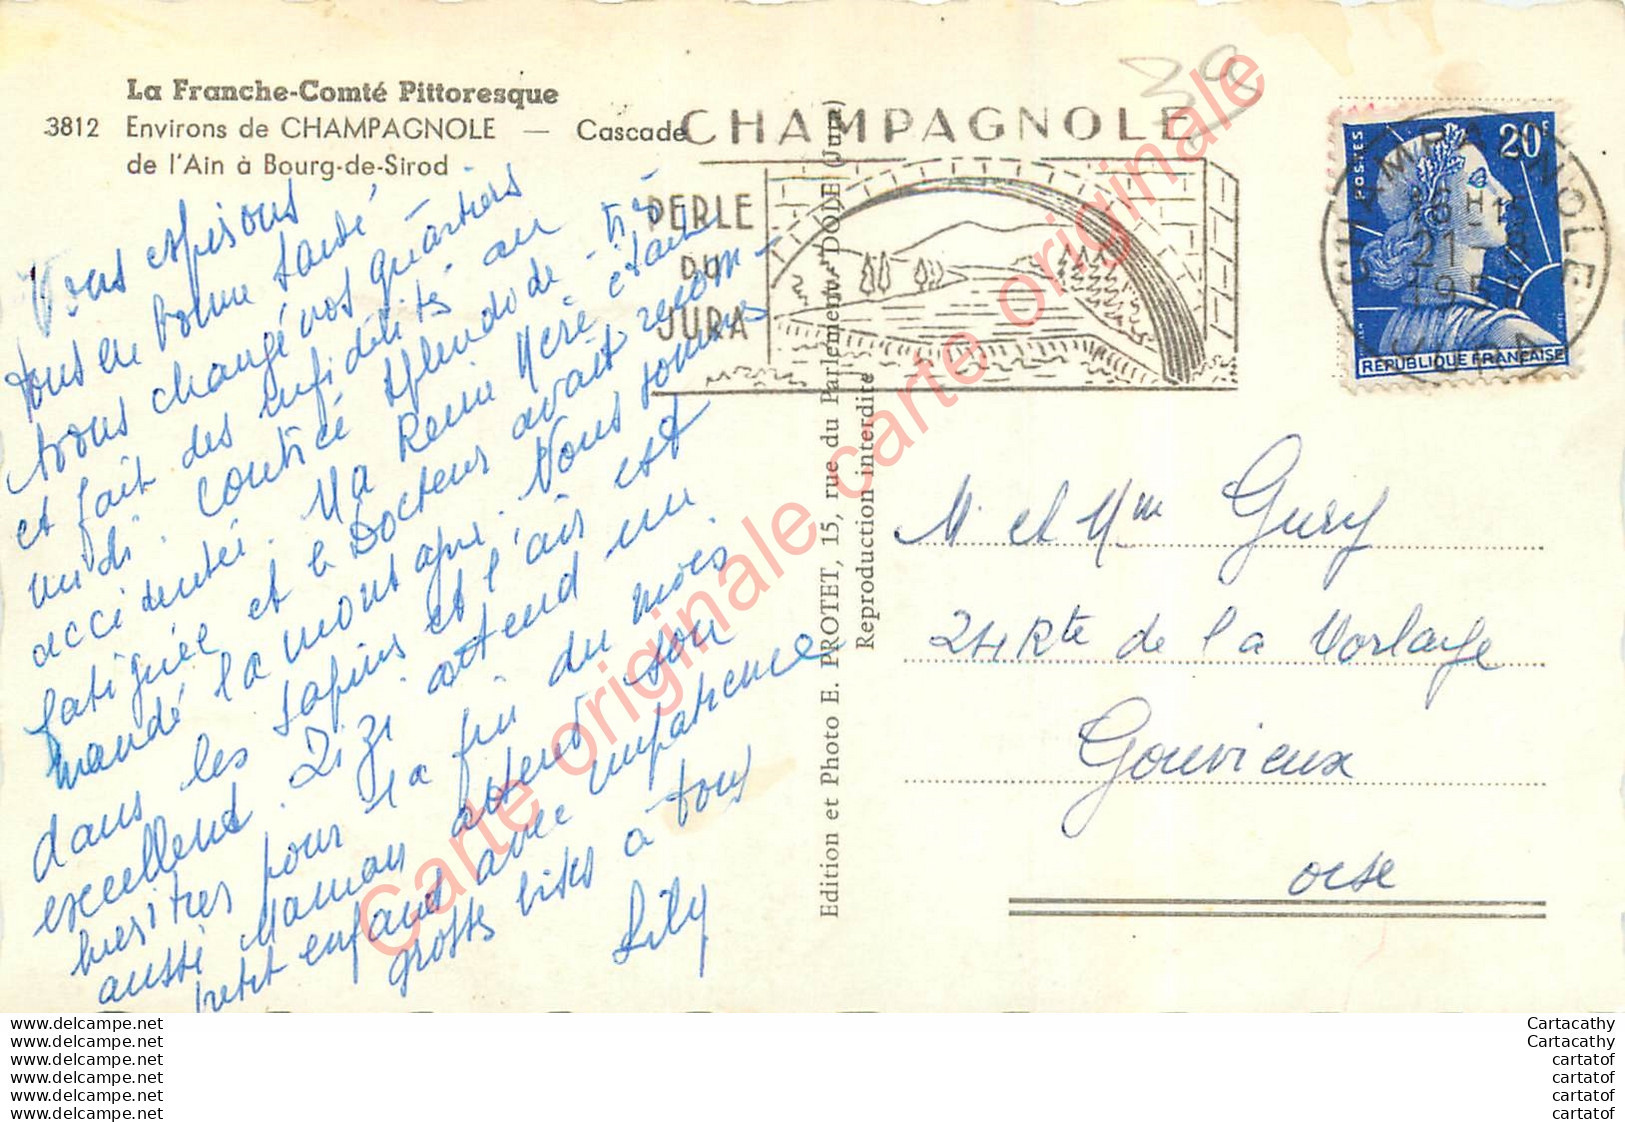 La Franche-Comté Pittoresque
3812 Environs de CHAMPAGNOLE — Cascade
de l'Ain à Bourg-de-Sirod
CHAMPAGNOLE
PERLE
DU
JURA
20F
POSTES
REPUBLIQUE FRANÇAISE
CHAMPAGNOLE
21 -
JURA
39
Vous espérons
tous en bonne santé
avons changé nos quartiers
et fait des infidélités au
midi. contrée splendide très
accidentée. Ma Reine Mère était
fatiguée et le Docteur avait recom-
mandé la montagne. Nous sommes
dans les sapins et l'air est
excellent. Zizi attend un
pour la fin du mois.
aussi Maman attend son
petit enfant avec impatience
grosses bises à tous
Lily
Edition et Photo E. PROTET, 15, rue du Parlement, DOLE (Jura)
Reproduction interdite
M. et Mme Gury
24 Rte de la
Gouvieux
oise
Carte originale carte originale
www.delcampe.net
www.delcampe.net
www.delcampe.net
www.delcampe.net
www.delcampe.net
www.delcampe.net
Cartacathy
Cartacathy
cartatof
cartatof
cartatof
cartatof